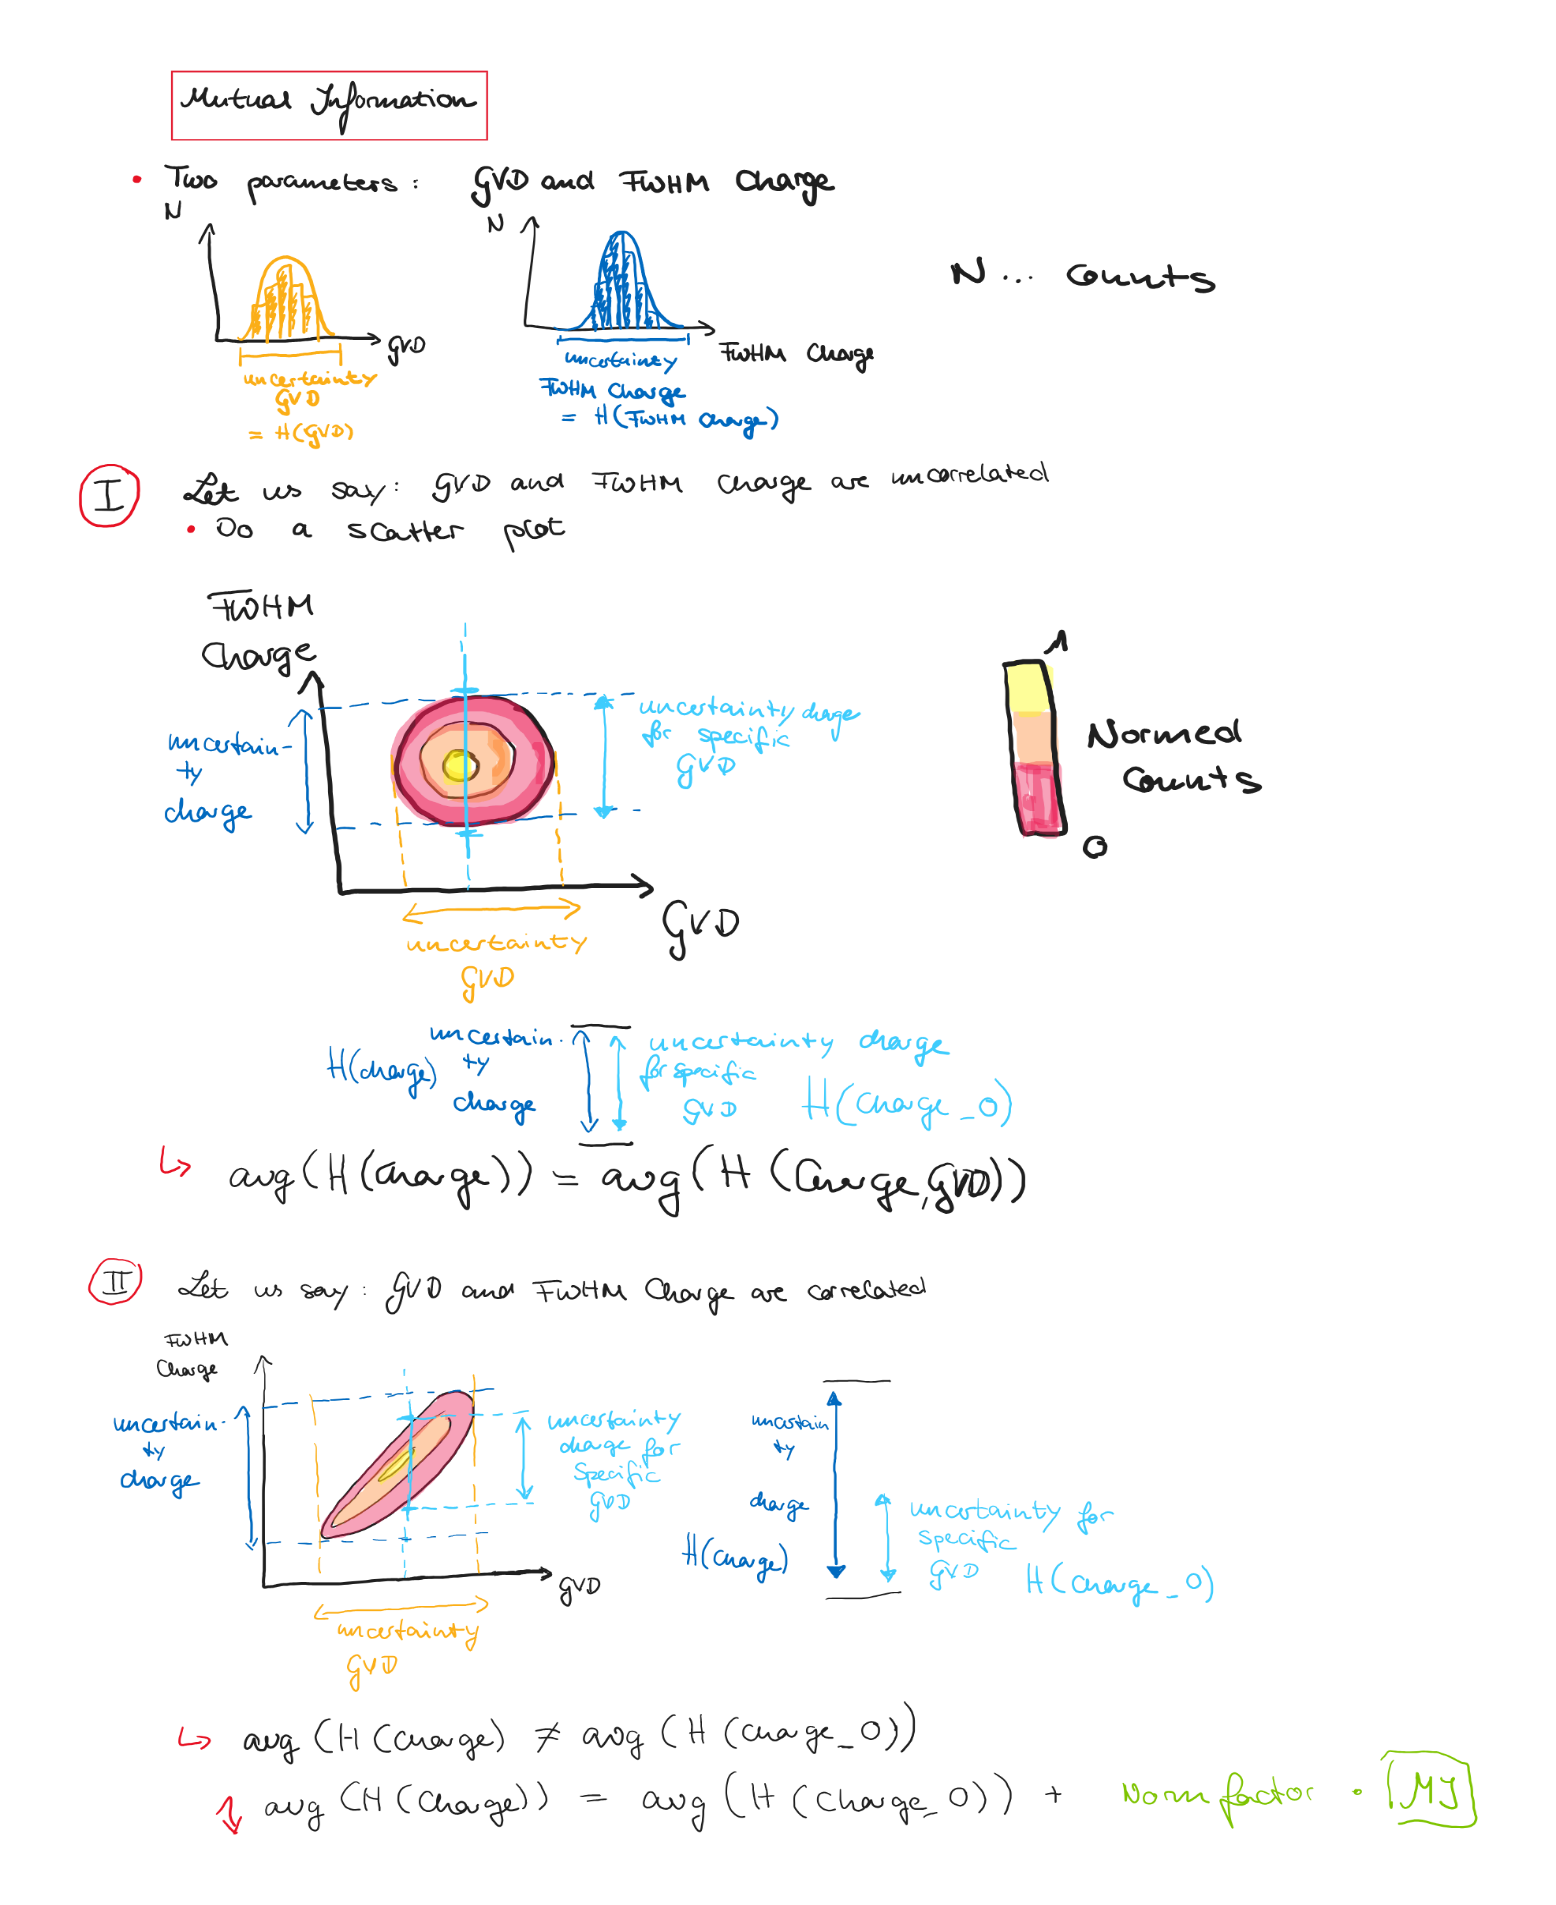 Mutual Information
• Two parameters: GVD and FWHM Charge
N
N
N ... Counts
GVD
FWHM Charge
uncertainty
GVD
= H(GVD)
uncertainty
FWHM Charge
= H(FWHM Charge)
I Let us say: GVD and FWHM Charge are uncorrelated
• Do a scatter plot
FWHM
Charge
uncertain-
ty
charge
uncertainty charge
for specific
GVD
GVD
uncertainty
GVD
1
Normed
Counts
0
H(charge)
uncertain.
ty
charge
uncertainty charge
for specific
GVD H(Charge_0)
↳ avg(H(Charge)) = avg(H(Charge,GVD))
II Let us say: GVD and FWHM Charge are correlated
FWHM
Charge
uncertain-
ty
charge
uncertainty
charge for
specific
GVD
GVD
uncertainty
GVD
uncertain
ty
charge
H(charge)
uncertainty for
specific
GVD H(Charge_0)
↳ avg (H(Charge) ≠ avg (H(Charge_0))
avg (H(Charge)) = avg (H(Charge_0)) + Norm factor · MI